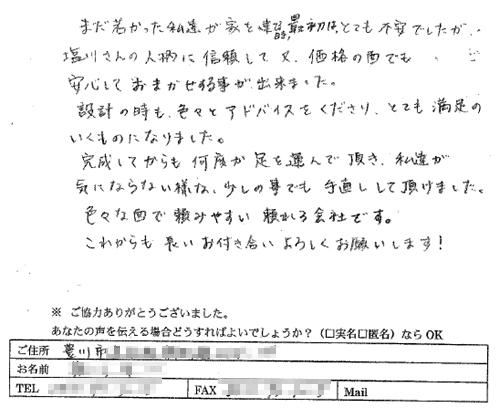 まだ若かった私達が家を建る時、最初はとても不安でしたが、
塩川さんの人柄に信頼して又、価格の面でも
安心しておまかせする事が出来ました。
設計の時も、色々とアドバイスをくださり、とても満足の
いくものになりました。
完成してからも何度か足を運んで頂き、私達が
気にならない様な、少しの事でも手直しして頂けました。
色々な面で頼みやすい頼れる会社です。
これからも長いお付き合いよろしくお願いします!
※ ご協力ありがとうございました。
あなたの声を伝える場合どうすればよいでしょうか?(□実名□匿名)ならOK
ご住所 豊川市
お名前
TEL FAX Mail